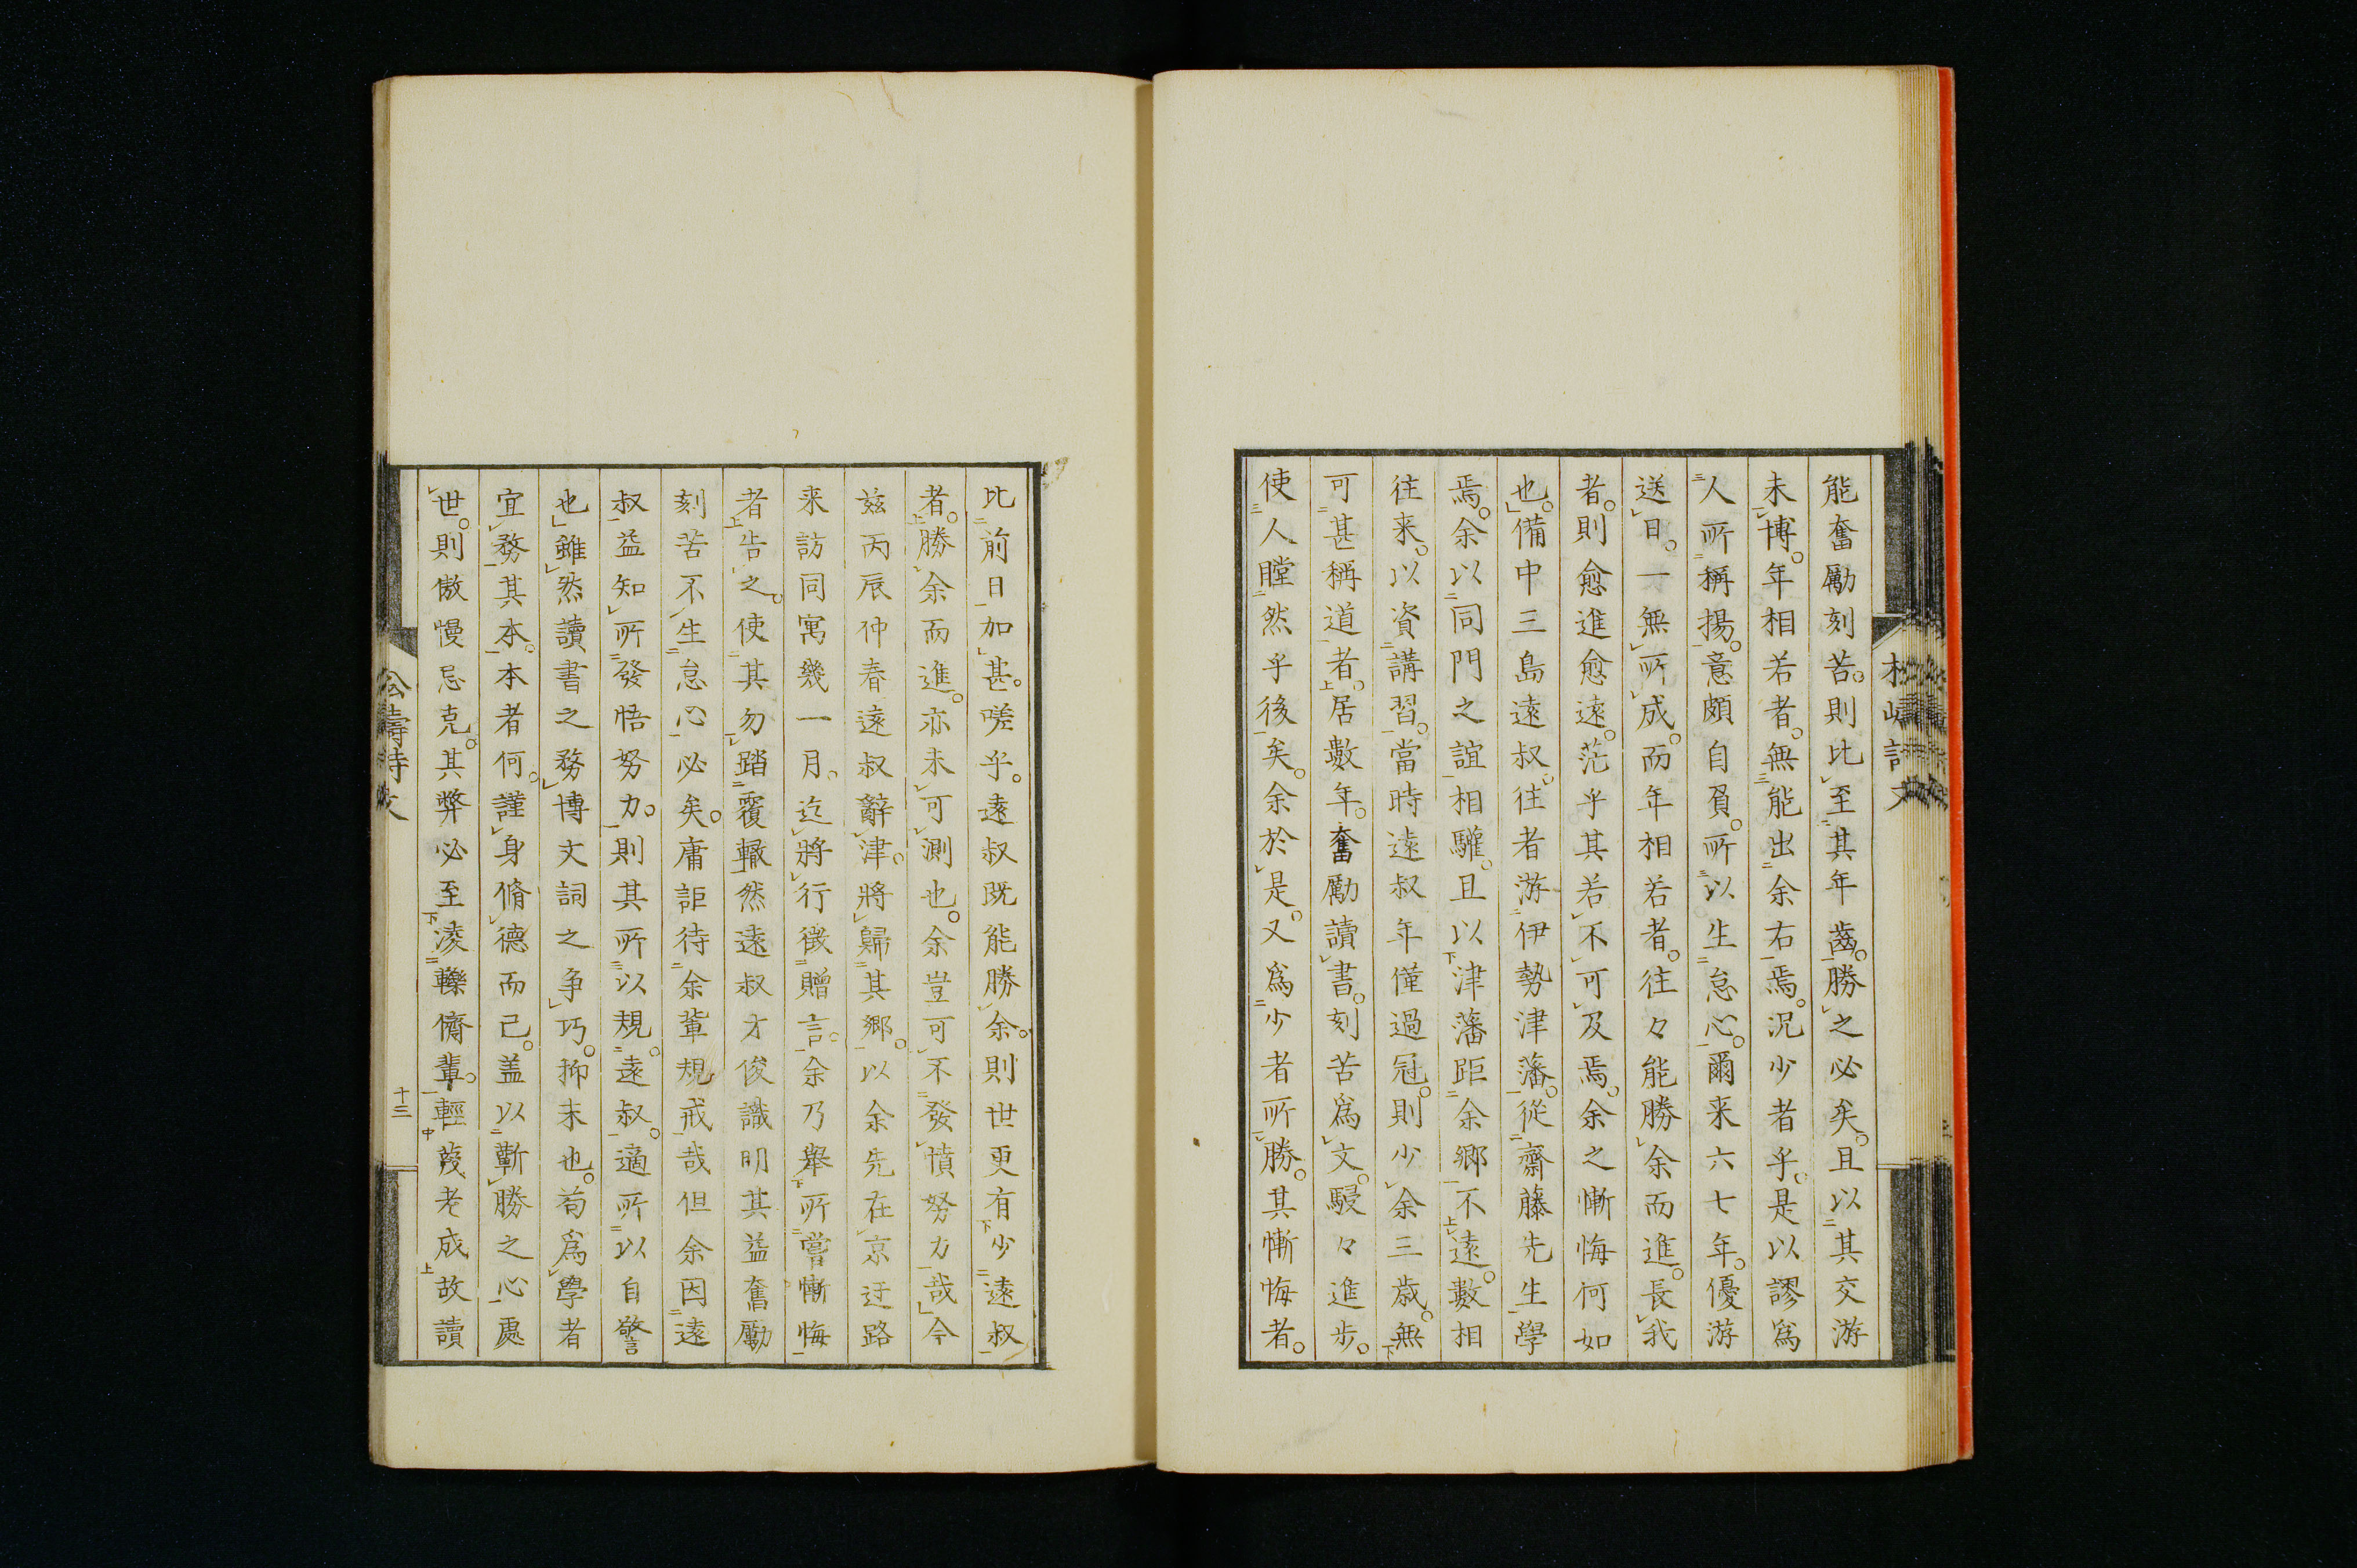 能奮勵刻苦。則比至其年齒。勝之必矣。且以其交游
未博。年相若者。無能出余右焉。況少者乎。是以謬爲
人所稱揚。意頗自負。所以生怠心。爾来六七年。優游
送日。一無所成。而年相若者。往々能勝余而進。長我
者。則愈進愈遠。茫乎其若不可及焉。余之慚悔何如
也。備中三島遠叔。往者游伊勢津藩。從齋藤先生學
焉。余以同門之誼相驩。且以津藩距余鄉不遠。數相
往来。以資講習。當時遠叔年僅過冠。則少余三歳。無
可甚稱道者。居數年。奮勵讀書。刻苦爲文。駸々進步。
使人瞠然乎後矣。余於是。又爲少者所勝。其慚悔者。
比前日加甚。嗟乎。遠叔既能勝余。則世更有少遠叔
者。勝余而進。亦未可測也。余豈可不發憤努力哉今
玆丙辰仲春遠叔辭津。將歸其鄉。以余先在京迂路
来訪同寓幾一月。迄將行徵贈言。余乃擧所嘗慚悔
者告之。使其勿踏覆轍然遠叔才俊識明其益奮勵
刻苦不生怠心必矣。庸詎待余輩規戒哉但余因遠
叔益知所發悟努力。則其所以規遠叔。適所以自警
也雖然讀書之務博文詞之争巧。抑末也。苟爲學者
宜務其本。本者何。謹身脩德而已。盖以蘄勝之心處
世。則傲慢忌克。其弊必至淩轢儕輩。輕蔑老成故讀
十三